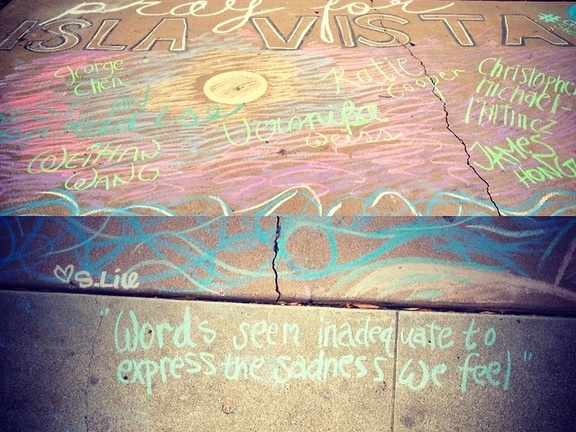 pray for
ISLA VISTA
George
Chen
Katie
Cooper
Christopher
Michael-
Martinez
Veronika
Weiss
WeiHan
WANG
JAMES
HONG
♡S.Lile
"Words seem inadequate to
express the sadness we feel"